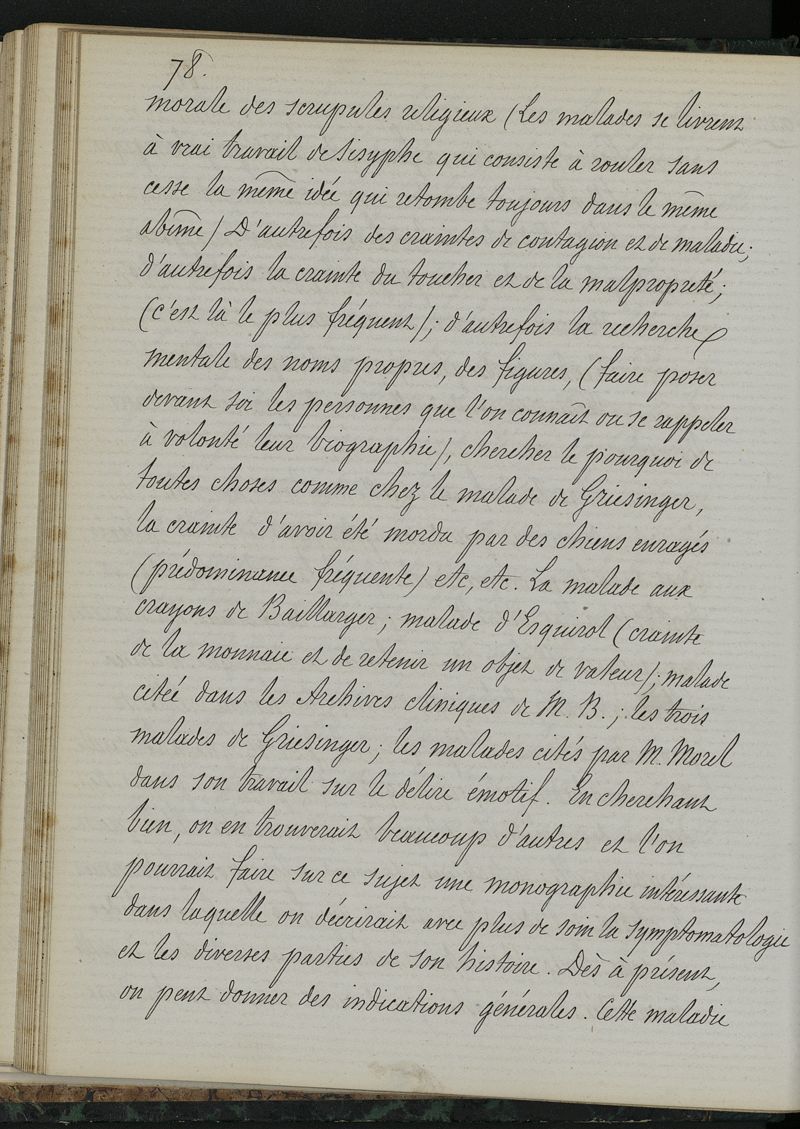 78.
morale des scrupules religieux (Les malades se livrent
à vrai travail de Sisyphe qui consiste à rouler sans
cesse la même idée qui retombe toujours dans le même
abîme) D'autrefois des craintes de contagion et de maladie;
d'autrefois la crainte du toucher et de la malpropreté;
(c'est là le plus fréquent); d'autrefois la recherche
mentale des noms propres, des figures, (faire poser
devant soi les personnes que l'on connaît ou se rappeler
à volonté leur biographie), chercher le pourquoi de
toutes choses comme chez le malade de Griesinger,
la crainte d'avoir été mordu par des chiens enragés
(prédominance fréquente) etc, etc. La malade aux
crayons de Baillarger; malade d'Esquirol (crainte
de la monnaie et de retenir un objet de valeur); malade
citée dans les Archives cliniques de M. B.; les trois
malades de Griesinger; les malades cités par M. Morel
dans son travail sur le délire émotif. En cherchant
bien, on en trouverait beaucoup d'autres et l'on
pourrait faire sur ce sujet une monographie intéressante
dans laquelle on décrirait avec plus de soin la symptomatologie
et les diverses parties de son histoire. Dès à présent,
on peut donner des indications générales. Cette maladie